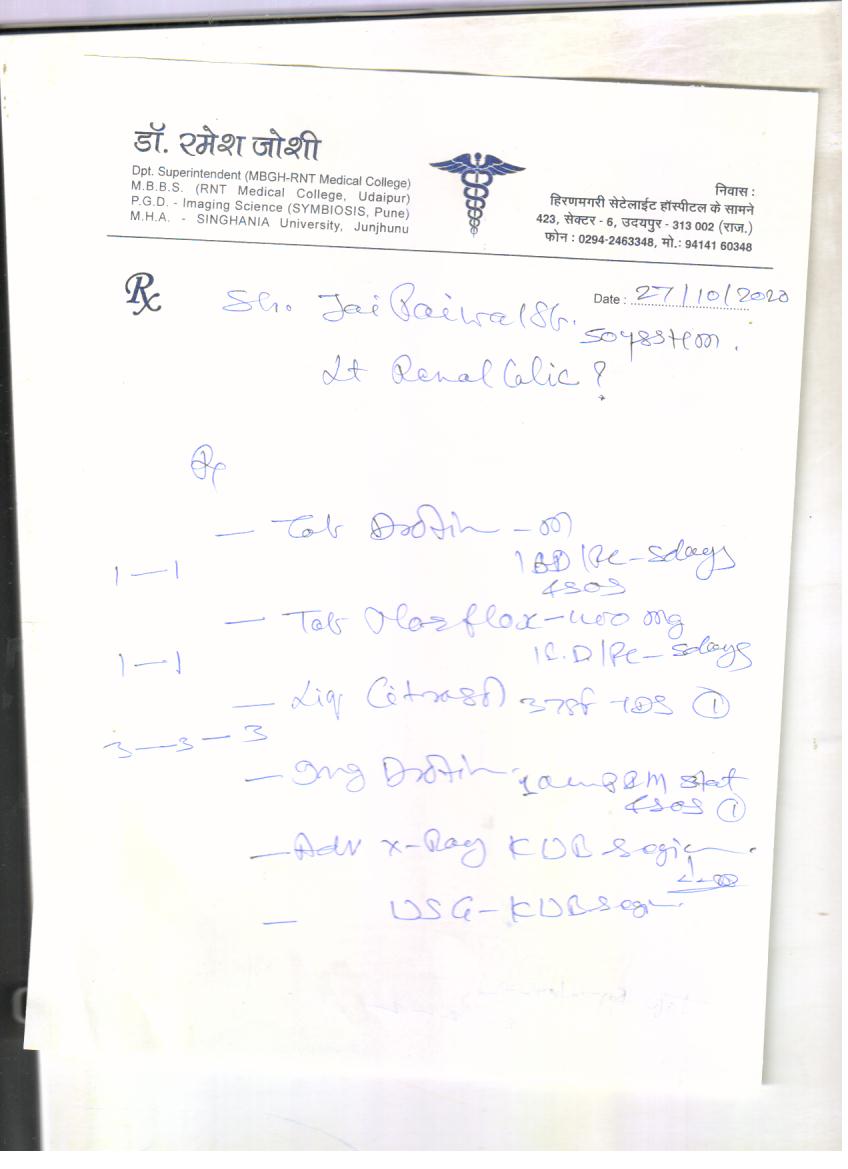 डॉ. रमेश जोशी
Dpt. Superintendent (MBGH-RNT Medical College)
M.B.B.S. (RNT Medical College, Udaipur)
P.G.D. - Imaging Science (SYMBIOSIS, Pune)
M.H.A. - SINGHANIA University, Junjhunu
निवास :
हिरणमगरी सेटेलाईट हॉस्पीटल के सामने
423, सेक्टर - 6, उदयपुर - 313 002 (राज.)
फोन : 0294-2463348, मो.: 94141 60348
Rx
Date : 27/10/2020
Sh. Jai
Lt Renal Colic ?
Rx
— Tab Drotin - M
1 BD/Pc - 5days
1—1
&SOS
— Tab -400 mg
1 B.D/Pc - 5days
1—1
— Liq TDS ①
3—3—3
— Inj Drotin IM stat
&SOS ①
— Adv X-Ray KUB
— USG-KUB